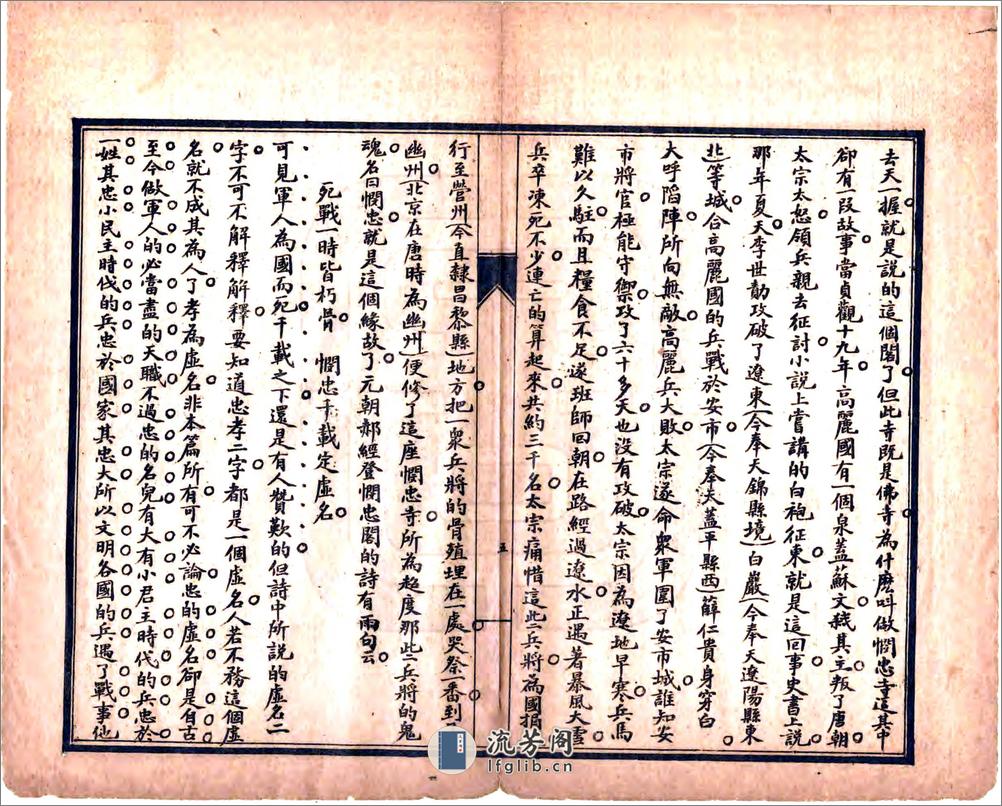 去天一握就是說的這個閣了但此寺既是佛寺為什麽呌做憫忠寺這其中
卻有一段故事當貞觀十九年高麗國有一個泉蓋蘇文弒其主叛了唐朝
太宗大怒領兵親去征討小説上嘗講的白袍征東就是這回事史書上説
那年夏天李世勣攻破了遼東(今奉天錦縣境)白巖(今奉天遼陽縣東
北)等城合高麗國的兵戰於安市(今奉天蓋平縣西)薛仁貴身穿白
大呼㨵陣所向無敵高麗兵大敗太宗遂命衆軍圍了安市城誰知安
市將官極能守禦攻了六十多天也没有攻破太宗因為遼地早寒兵馬
難以久駐而且糧食不足遂班師回朝在路經過遼水正遇著暴風大雪
兵卒凍死不少連亡的算起來共約三千名太宗痛惜這些兵將為國捐
五
行至營州(今直隸昌黎縣)地方把一衆兵將的骨殖埋在一處哭祭一番到
幽州(北京在唐時為幽州)便修了這座憫忠寺所為超度那些兵將的鬼
魂名曰憫忠就是這個緣故了元朝郝經登憫忠閣的詩有兩句云
死戰一時皆朽骨 憫忠千載定虛名
可見軍人為國而死千載之下還是有人贊歎的但詩中所説的虛名二
字不可不解釋解釋要知道忠孝二字都是一個虛名人若不務這個虛
名就不成其為人了孝為虛名非本篇所有可不必論忠的虛名卻是自古
至今做軍人的必當盡的天職不過忠的名兒有大有小君主時代的兵忠於
一姓其忠小民主時伐的兵忠於國家其忠大所以文明各國的兵遇了戰事他
流芳阁
lfglib.cn